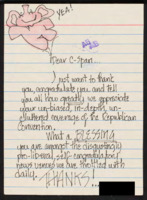 YEA!
Dear C-Span...
I just want to thank
you, congratulate you, and tell
you all how greatly we appreciate
your un-biased, in-depth, un-
cluttered coverage of the Republican
Convention.
What a BLESSING
you are amongst the disgustingly
pro-liberal, self-congratulatory
news venues we are that
daily.
THANKS!...